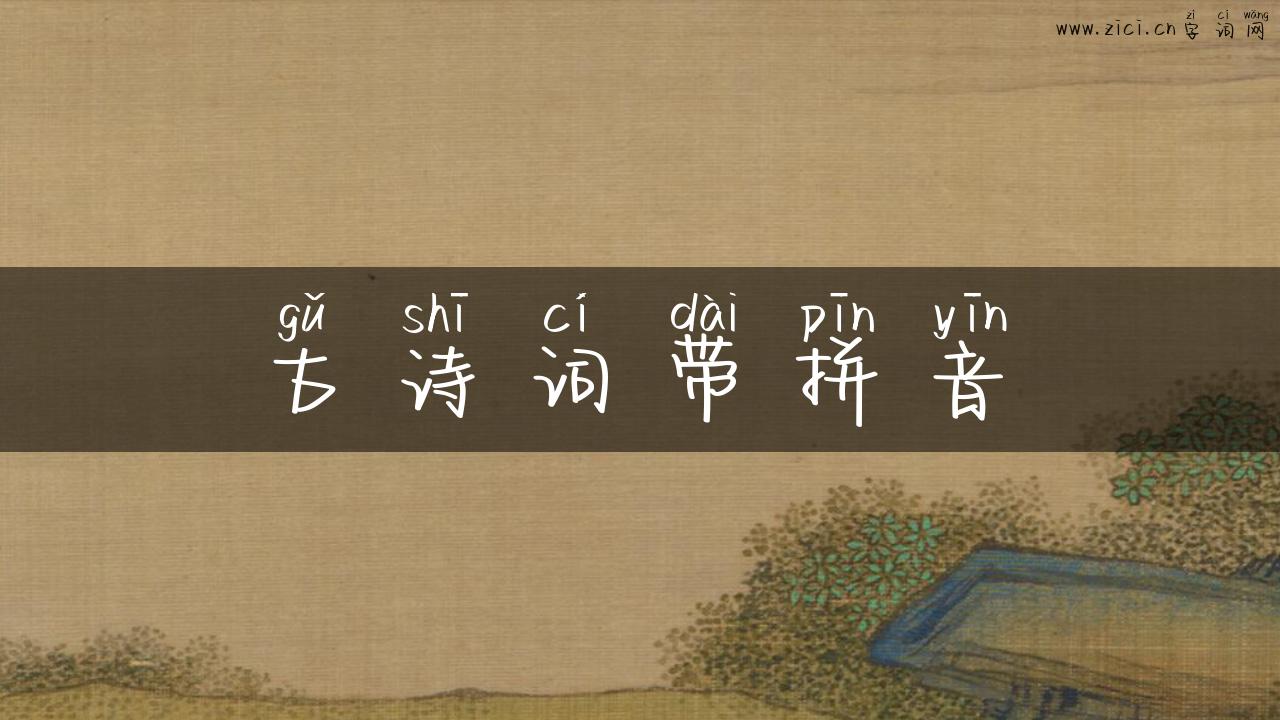 zì cí wǎng
www.zici.cn 字 词 网
gǔ shī cí dài pīn yīn
古 诗 词 带 拼 音